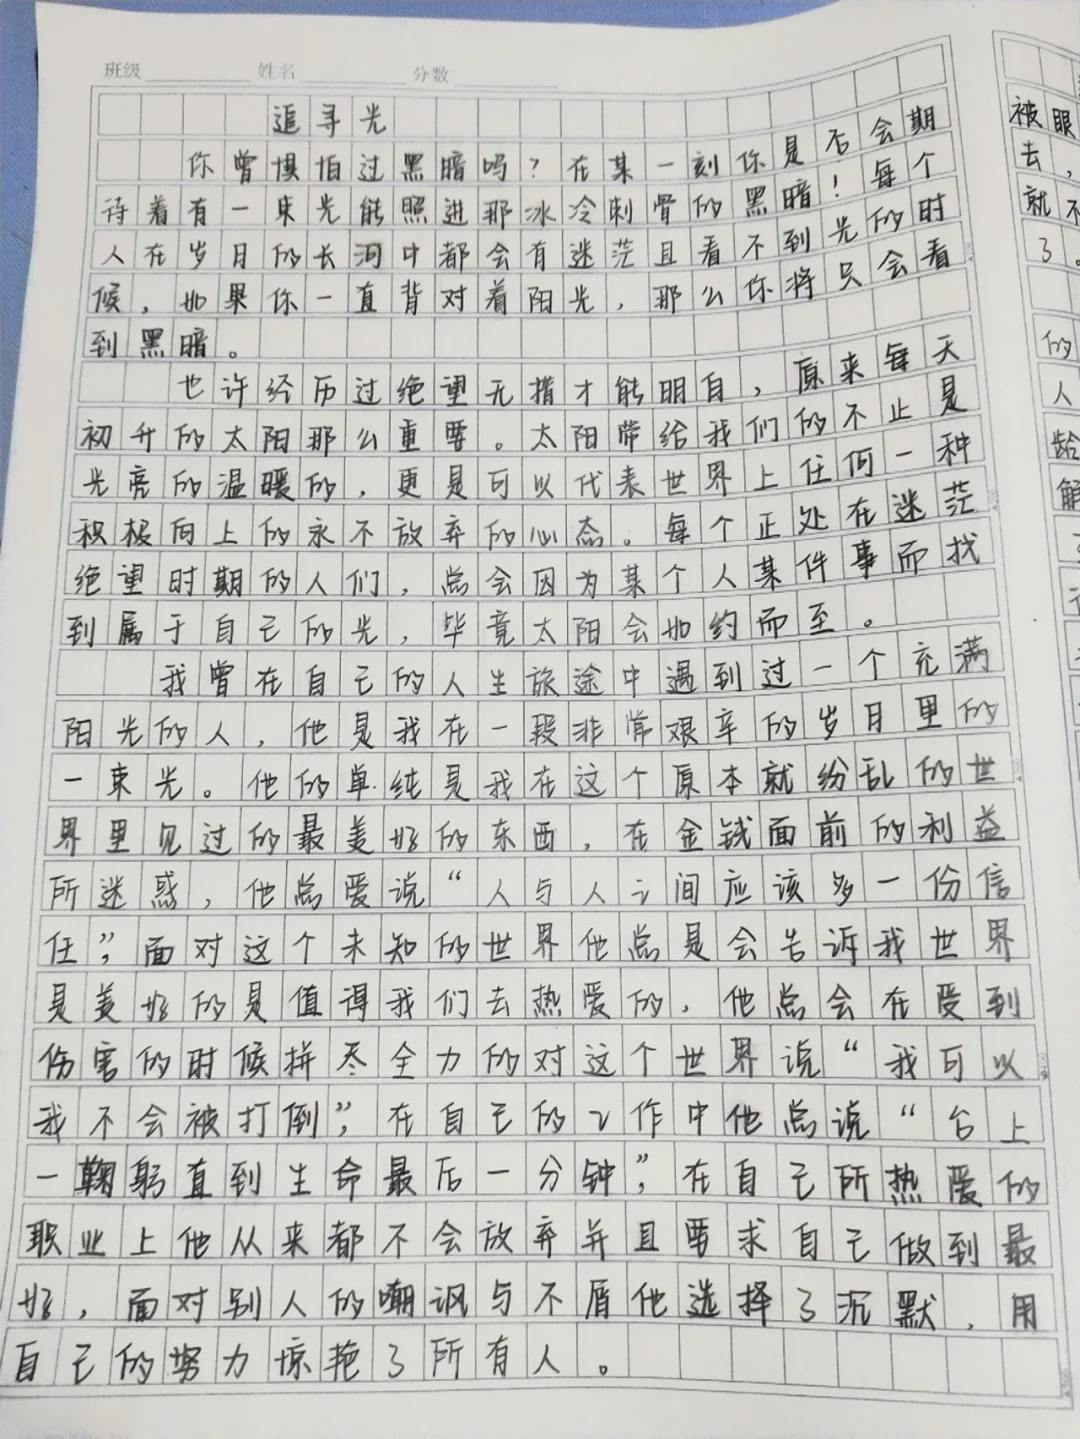 班级 姓名 分数
追寻光
你曾惧怕过黑暗吗？在某一刻你是否会期
待着有一束光能照进那冰冷刺骨的黑暗！每个
人在岁月的长河中都会有迷茫且看不到光的时
候，如果你一直背对着阳光，那么你将只会看
到黑暗。
也许经历过绝望无措才能明白，原来每天
初升的太阳那么重要。太阳带给我们的不止是
光亮的温暖的，更是可以代表世界上任何一种
积极向上的永不放弃的心态。每个正处在迷茫
绝望时期的人们，总会因为某个人某件事而找
到属于自己的光，毕竟太阳会如约而至。
我曾在自己的人生旅途中遇到过一个充满
阳光的人，他是我在一段非常艰辛的岁月里的
一束光。他的单纯是我在这个原本就纷乱的世
界里见过的最美好的东西，在金钱面前的利益
所迷惑，他总爱说“人与人之间应该多一份信
任”，面对这个未知的世界他总是会告诉我世界
是美好的是值得我们去热爱的，他总会在受到
伤害的时候拼尽全力的对这个世界说“我可以
我不会被打倒”，在自己的工作中他总说“台上
一鞠躬直到生命最后一分钟”，在自己所热爱的
职业上他从来都不会放弃并且要求自己做到最
好，面对别人的嘲讽与不屑他选择了沉默，用
自己的努力惊艳了所有人。
被眼
去，
就不
了。
的
人
龄
解